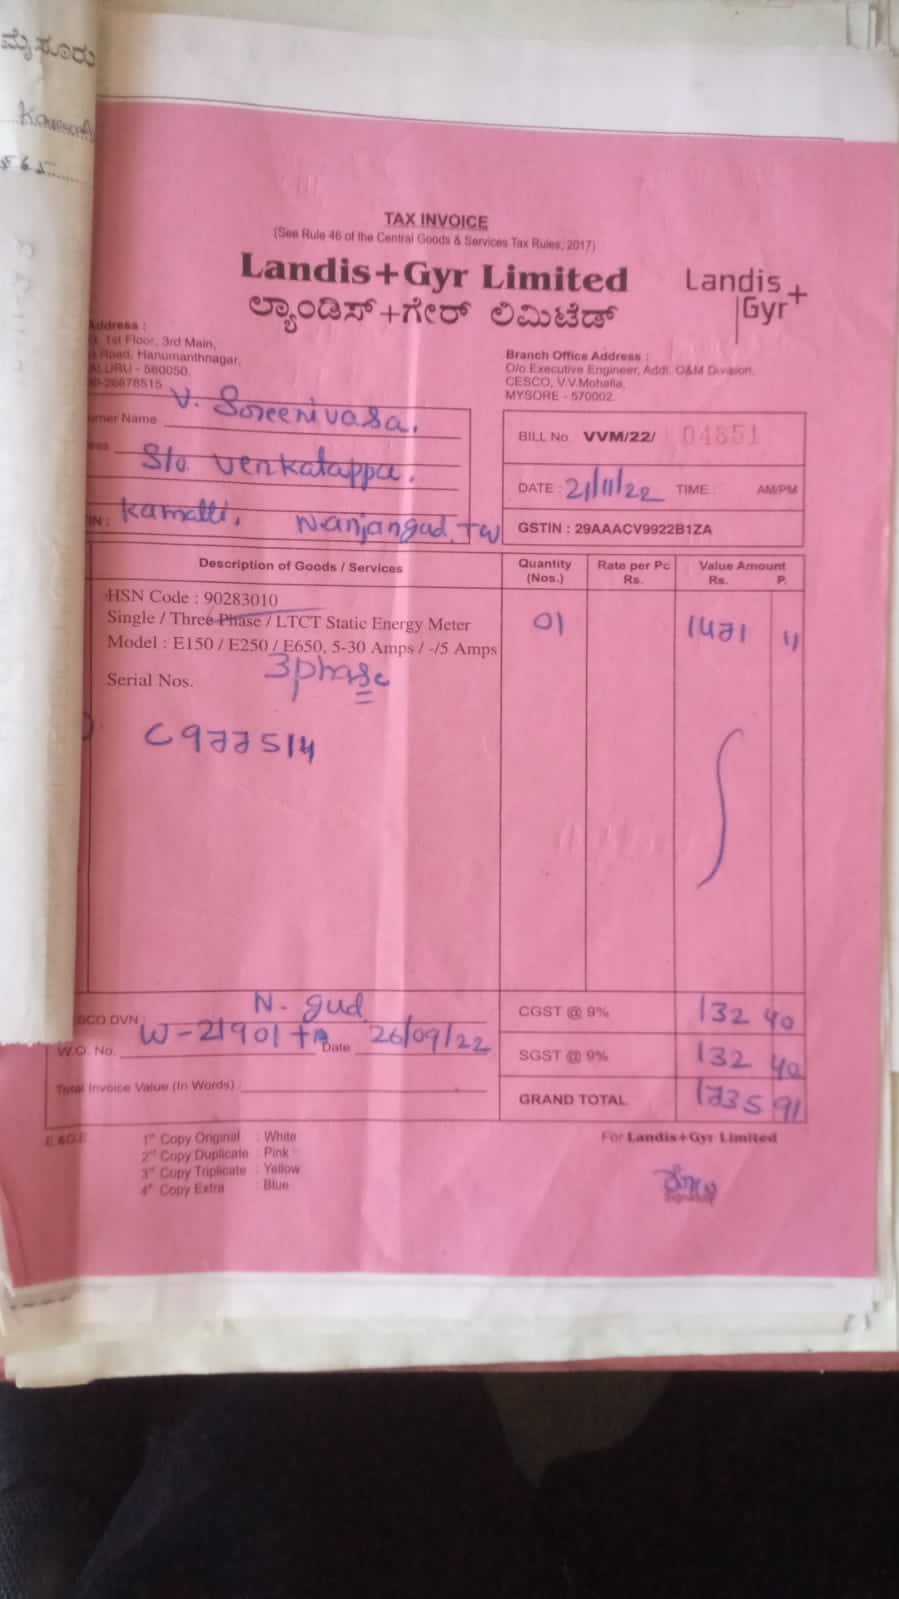 ಮೈಸೂರು
TAX INVOICE
(See Rule 46 of the Central Goods & Services Tax Rules, 2017)
Landis+Gyr Limited
ಲ್ಯಾಂಡಿಸ್+ಗೇರ್ ಲಿಮಿಟೆಡ್
Landis+
Gyr
Address :
1st Floor, 3rd Main,
Road, Hanumanthnagar,
ALURU - 560050.
26678515
Branch Office Address :
O/o Executive Engineer, Addl. O&M Division,
CESCO, V.V.Mohalla,
MYSORE - 570002.
mer Name V. Sreenivasa.
S/o Venkatappa.
IN : Kamatti, Nanjangud. Tq
BILL No. VVM/22/ 04851
DATE : 21/11/22 TIME : AM/PM
GSTIN : 29AAACV9922B1ZA
Description of Goods / Services Quantity (Nos.) Rate per Pc Rs. Value Amount Rs. P.
HSN Code : 90283010
Single / Three Phase / LTCT Static Energy Meter 01 1471 11
Model : E150 / E250 / E650, 5-30 Amps / -/5 Amps
3 phase
Serial Nos.
C977514
SCO DVN : N. gud
W.O. No. W-21901 Date 26/09/22
Total Invoice Value (In Words) :
CGST @ 9% 132 40
SGST @ 9% 132 40
GRAND TOTAL 1735 91
E &O.E
1st Copy Original : White
2nd Copy Duplicate : Pink
3rd Copy Triplicate : Yellow
4th Copy Extra : Blue
For Landis+Gyr Limited